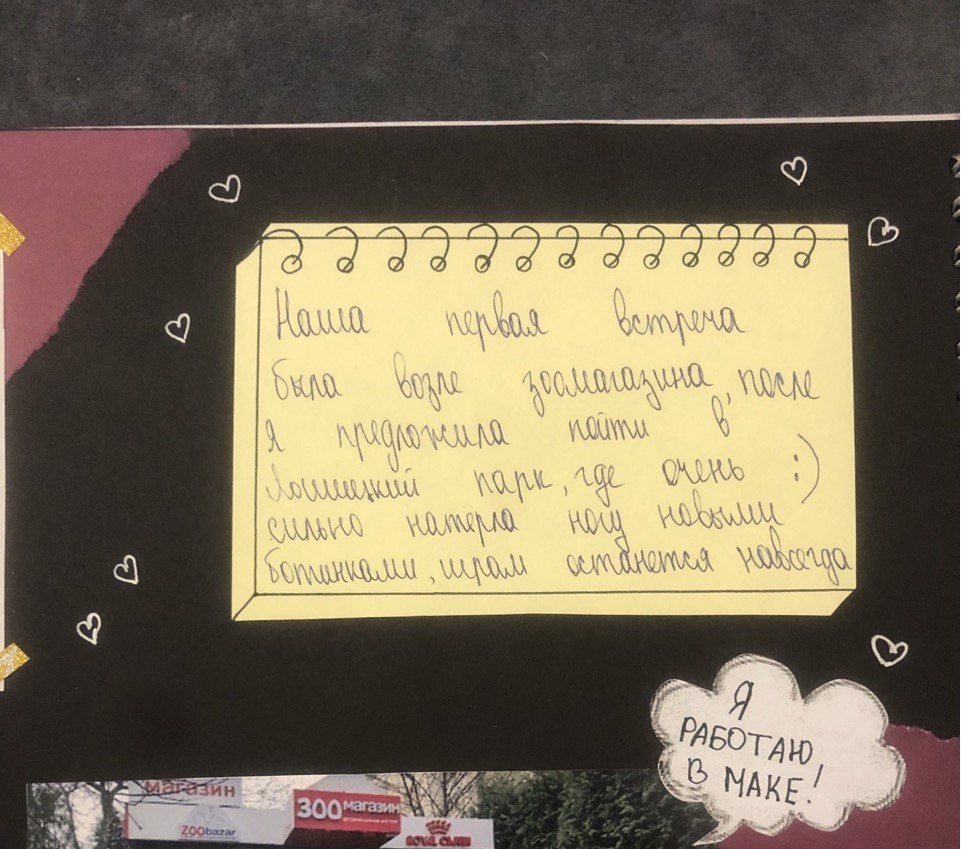 Наша первая встреча
была возле зоомагазина, после
я предложила пойти в
Лошицкий парк, где очень :)
сильно натёрла ногу новыми
ботинками, шрам останется навсегда
Я
РАБОТАЮ
В МАКЕ!
магазин
ZOObazar
ЗООмагазин
ROYAL CANIN